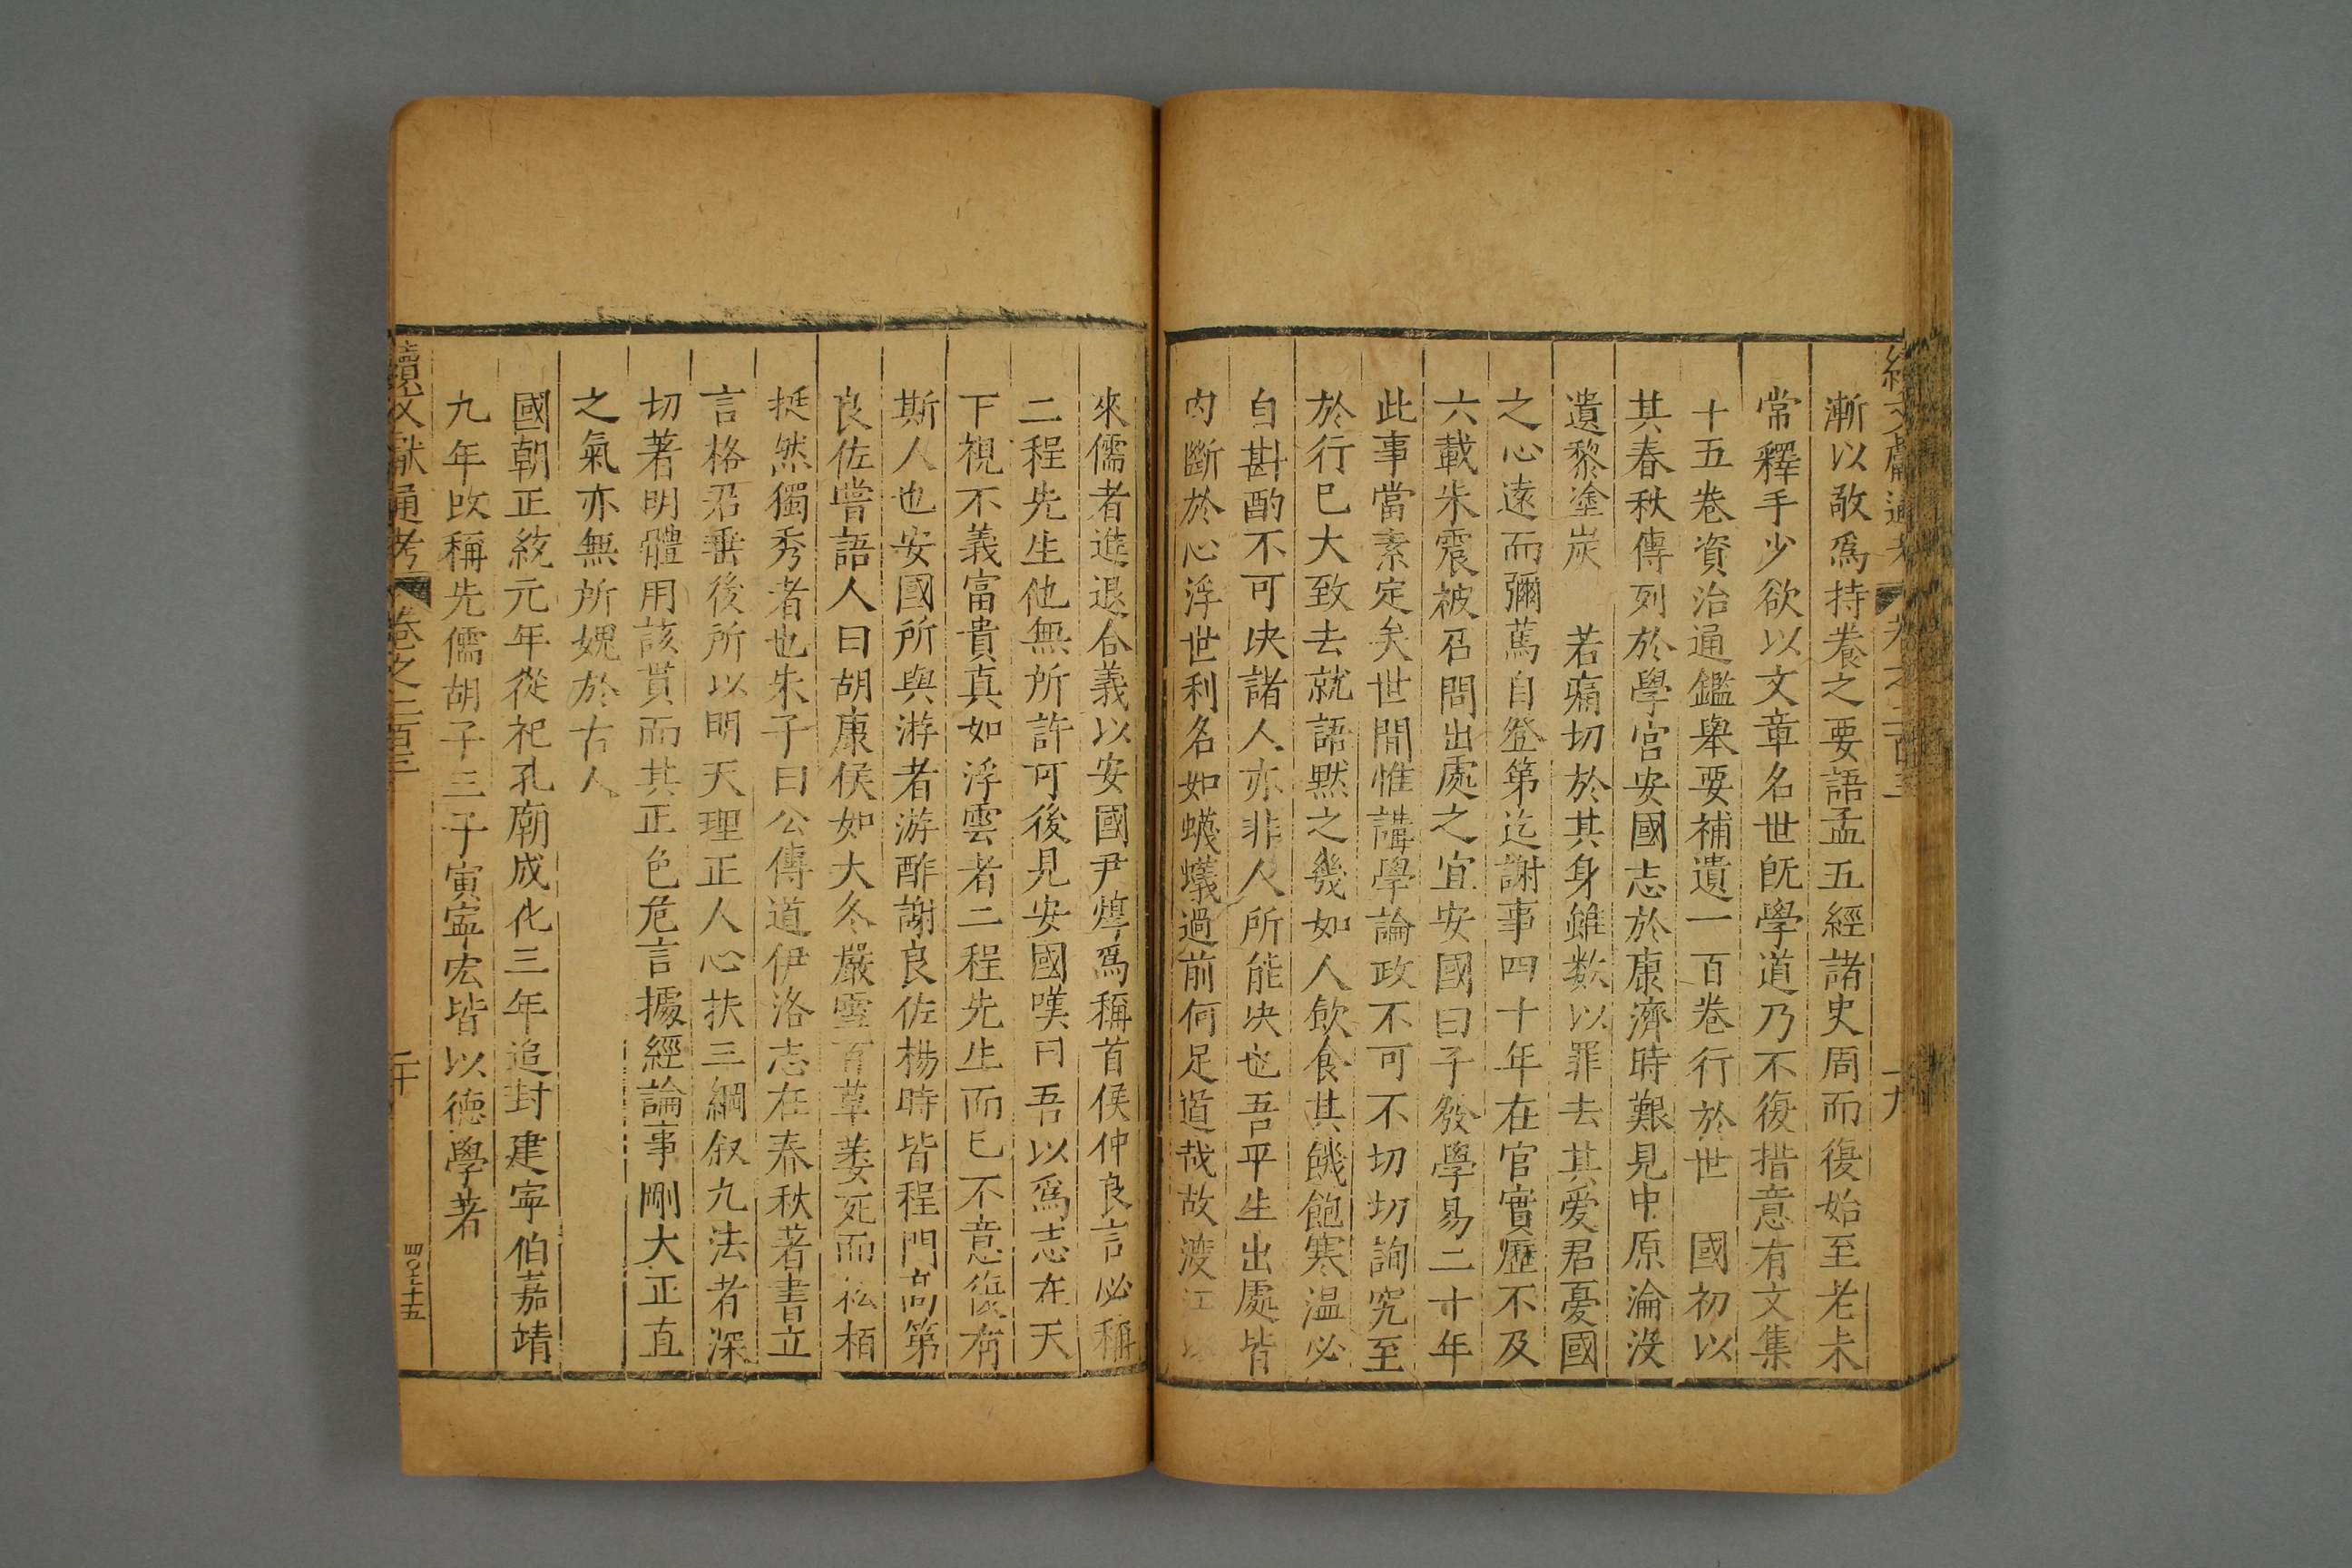 續文獻通考 卷之二百三 十九
漸以敬爲持養之要語孟五經諸史周而復始至老未
常釋手少欲以文章名世旣學道乃不復措意有文集
十五卷資治通鑑舉要補遺一百卷行於世 國初以
其春秋傳列於學宮安國志於康濟時艱見中原淪没
遺黎塗炭 若痛切於其身雖數以罪去其爱君憂國
之心遠而彌篤自登第迄謝事四十年在官實歷不及
六載朱震被召問出處之宜安國曰子發學易二十年
此事當素定矣世間惟講學論政不可不切切詢究至
於行已大致去就語默之幾如人飲食其饑飽寒温必
自斟酌不可决諸人亦非人所能决也吾平生出處皆
内斷於心浮世利名如蠛蠓過前何足道哉故渡江以
來儒者進退合義以安國尹焞爲稱首侯仲良言必稱
二程先生他無所許可後見安國嘆曰吾以爲志在天
下視不義富貴真如浮雲者二程先生而已不意復有
斯人也安國所與游者游酢謝良佐楊時皆程門高第
良佐嘗語人曰胡康侯如大冬嚴雪百草萎死而松栢
挺然獨秀者也朱子曰公傳道伊洛志在春秋著書立
言格君垂後所以明天理正人心扶三綱叙九法者深
切著明體用該貫而其正色危言據經論事剛大正直
之氣亦無所媿於古人
國朝正統元年從祀孔廟成化三年追封建寧伯嘉靖
九年改稱先儒胡子三子寅寧宏皆以德學著
續文獻通考 卷之二百三 二十